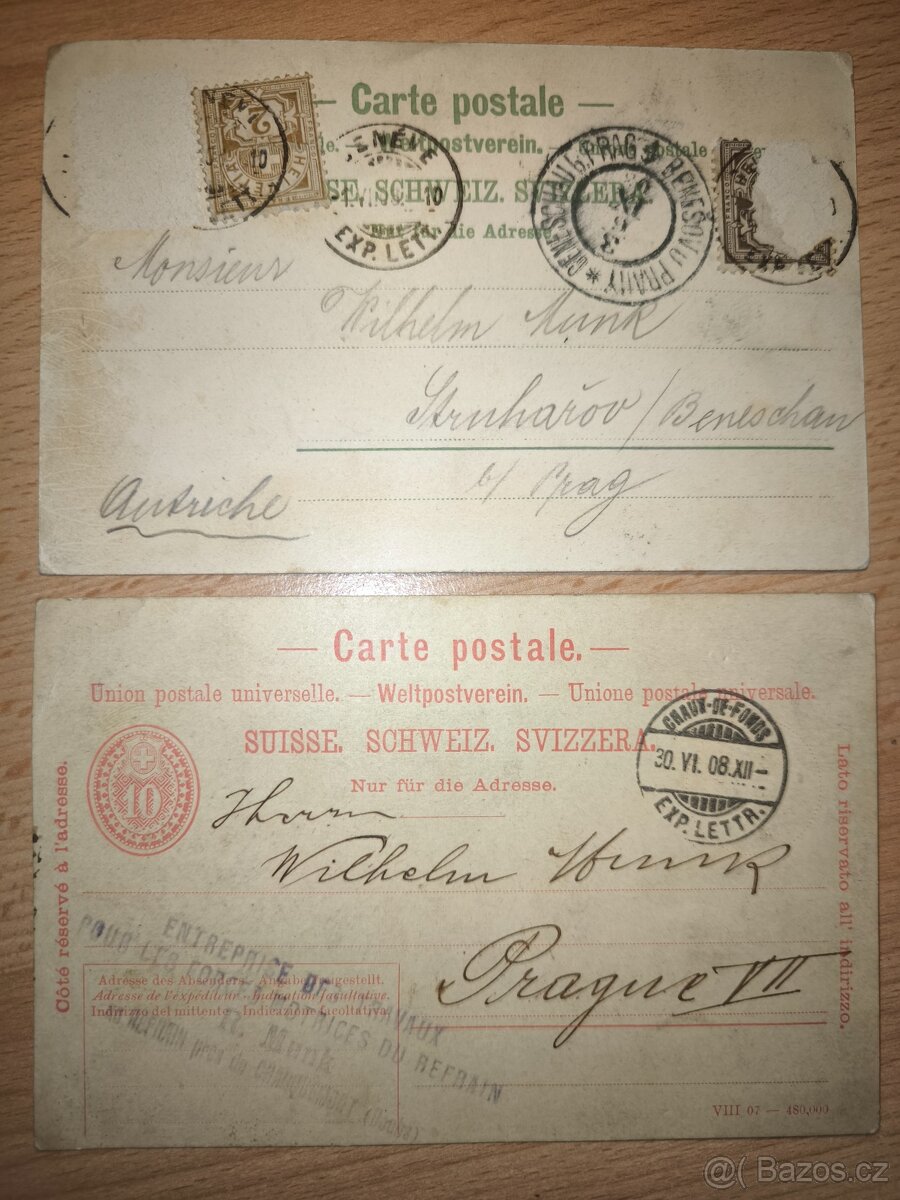 — Carte postale —
Weltpostverein.
SE. SCHWEIZ. SVIZZERA
Nur für die Adresse
2
HELVETIA
10
NÈVE
10
EXP. LETTR.
BENESCHAU b. PRAG
BENEŠOV u PRAHY
Monsieur
Wilhelm Munk
Struhařov / Beneschau
b/ Prag
Autriche
— Carte postale. —
Union postale universelle. — Weltpostverein. — Unione postale universale.
SUISSE. SCHWEIZ. SVIZZERA.
Nur für die Adresse.
10
CHAUX-DE-FONDS
30. VI. 08. XII-
EXP. LETTR.
Côté réservé à l'adresse.
Lato riservato all' indirizzo.
Herrn
Wilhelm Munk
Prague VII
ENTREPRISE DES TRAVAUX
POUR LES FORCES MOTRICES DU REFRAIN
Munk
Adresse des Absenders — Angabe freigestellt.
Adresse de l'expéditeur — Indication facultative.
Indirizzo del mittente — Indicazione facoltativa.
VIII 07 — 480,000
@( Bazos.cz